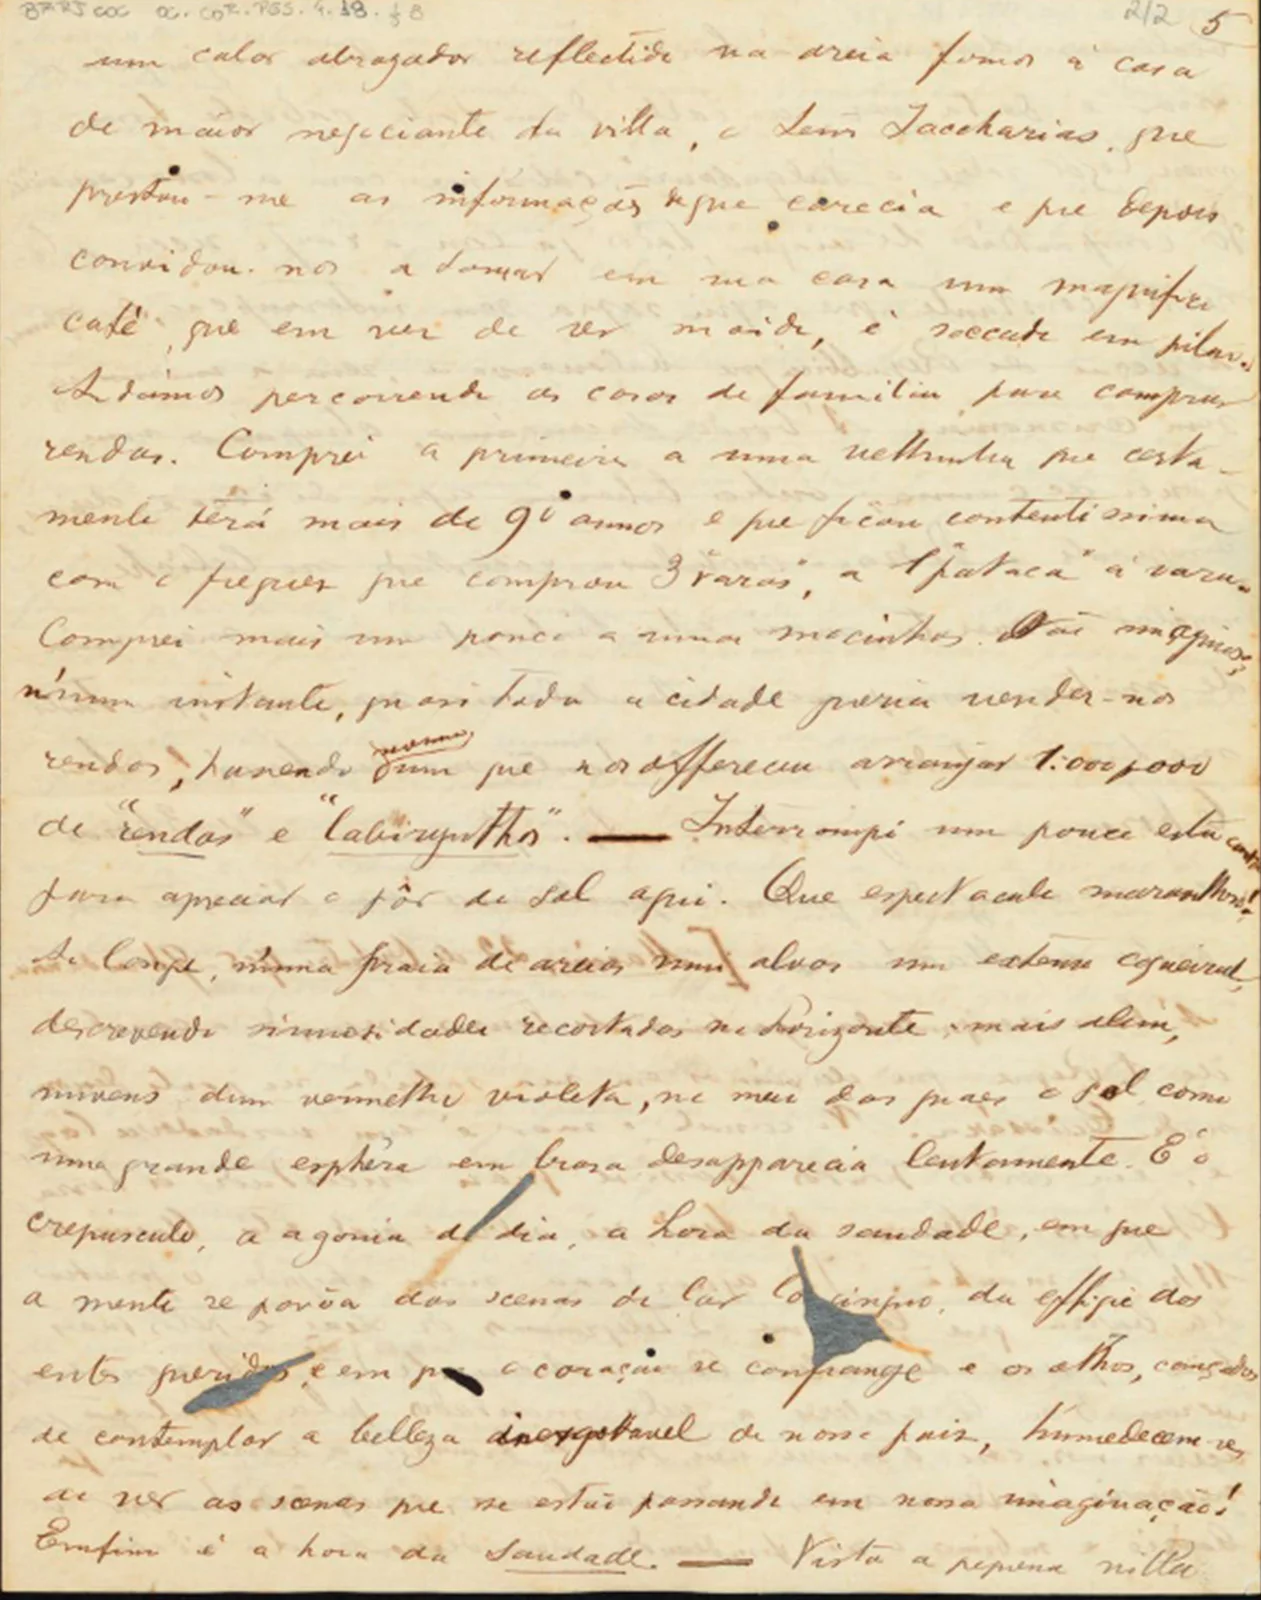 BR RJ COC OC. COR. PES. 4. 18. f 8
2/2 5
um calor abrazador reflectido na areia fomos á casa
do maior negociante da villa, o Senr Zaccharias, que
prestou-me as informações que carecia e que depois
convidou-nos a tomar em sua casa um magnifico
café, que em vez de ser moido, é soccado em pilão.
Andámos percorrendo as casas de familia para comprar
rendas. Comprei a primeira a uma velhinha que certa-
mente terá mais de 90 annos e que ficou contentissima
com o freguez que comprou 3 "varas", a 1 "pataca" á vara.
Comprei mais um pouco a umas mocinhas. Não imaginas,
n'um instante, quasi toda a cidade queria vender-nos
rendas, havendo homem que nos offereceu arranjar 1:000$000
de "rendas" e "labiryntho". — Interrompi um pouco esta carta
para apreciar o pôr do sol aqui. Que espectaculo maravilhoso!
Ao longe, n'uma praia de areias mui alvas um extenso coqueiral,
descrevendo sinuosidades recortadas no horizonte; mais além,
nuvens dum vermelho violeta, no meio das quaes o sol como
uma grande esphéra em brasa desapparecia lentamente. É o
crepusculo, a agonia do dia, a hora da saudade, em que
a mente se povôa das scenas do lar longinquo, da effigie dos
entes queridos, e em que o coração se confrange e os olhos, cançados
de contemplar a belleza inexgottavel do nosso paiz, humedecem-se,
ao ver as scenas que se estão passando em nossa imaginação!
Emfim é a hora da saudade. — Vista a pequena villa